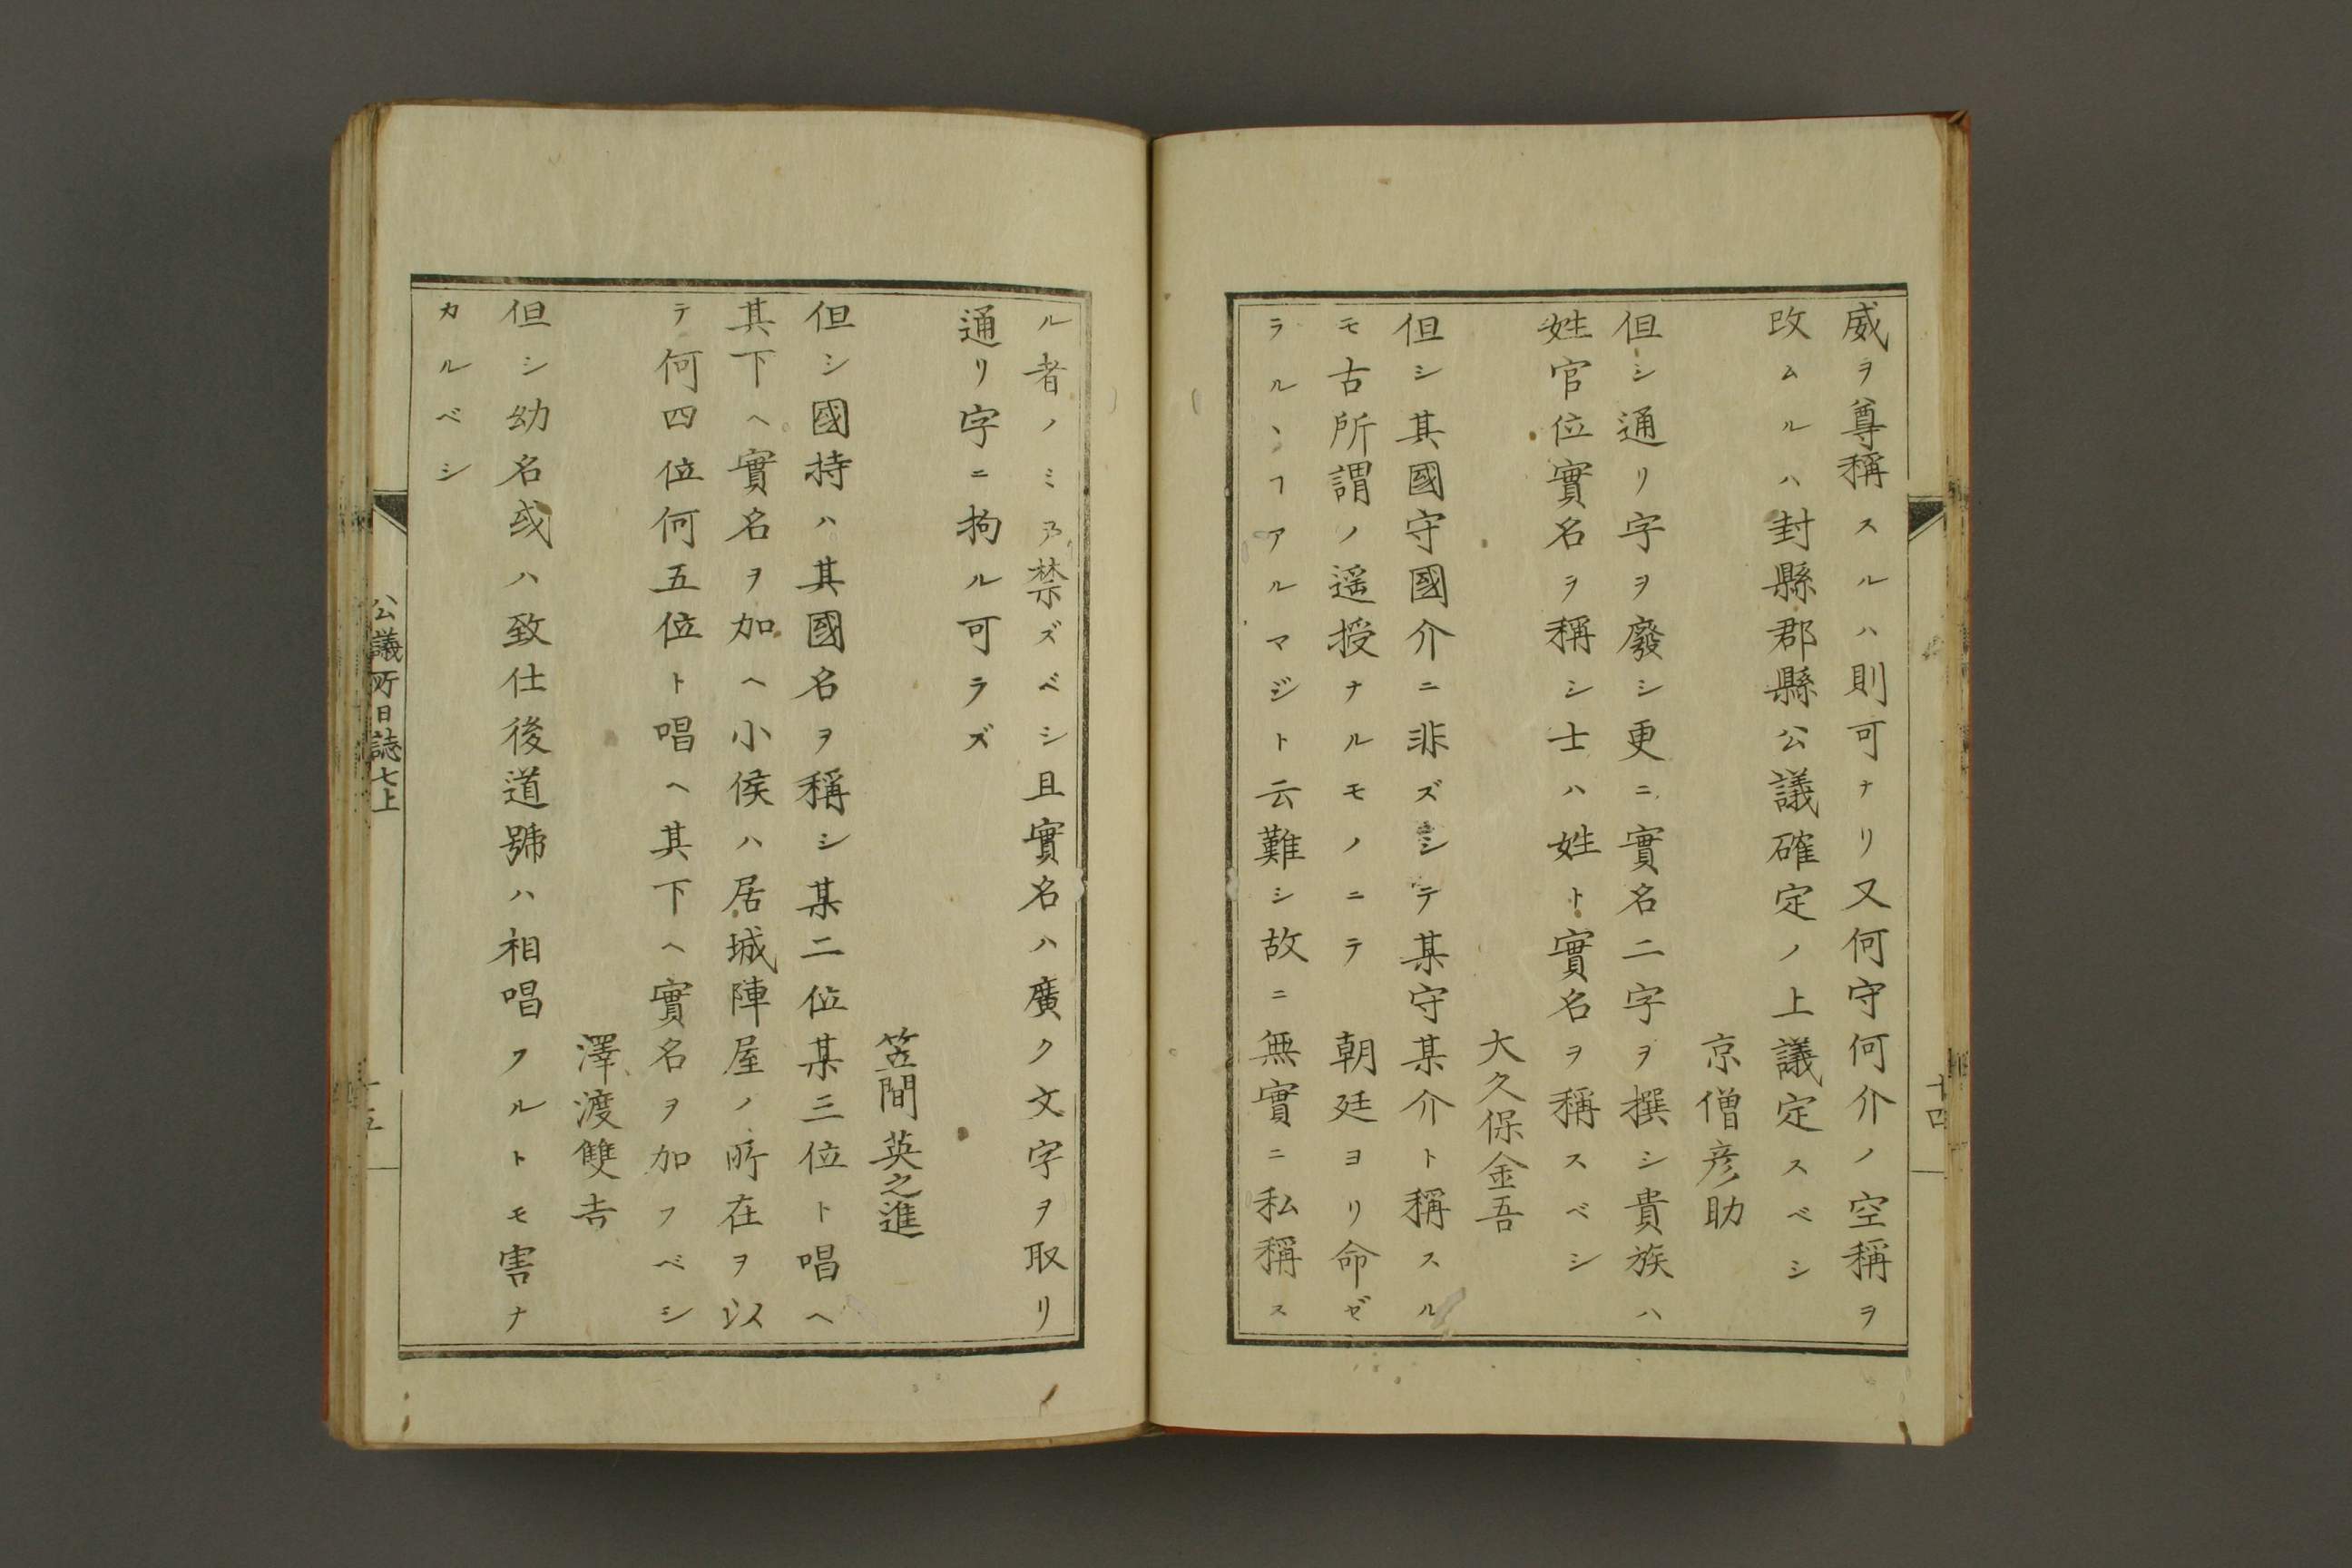 威ヲ尊稱スルハ則可ナリ又何守何介ノ空稱ヲ
改ムルハ封縣郡縣公議確定ノ上議定スベシ
京僧彦助
但シ通リ字ヲ廢シ更ニ實名二字ヲ撰シ貴族ハ
姓官位實名ヲ稱シ士ハ姓ト實名ヲ稱スベシ
大久保金吾
但シ其國守國介ニ非ズシテ某守某介ト稱スル
モ古所謂ノ遥授ナルモノニテ 朝廷ヨリ命ゼ
ラルヽヿアルマジト云難シ故ニ無實ニ私稱ス
十四
ル者ノミヲ禁ズベシ且實名ハ廣ク文字ヲ取リ
通リ字ニ拘ル可ラズ
笠間英之進
但シ國持ハ其國名ヲ稱シ某二位某三位ト唱ヘ
其下ヘ實名ヲ加ヘ小侯ハ居城陣屋ノ所在ヲ以
テ何四位何五位ト唱ヘ其下ヘ實名ヲ加フベシ
澤渡雙吉
但シ幼名或ハ致仕後道號ハ相唱フルトモ害ナ
カルベシ
公議所日誌七上